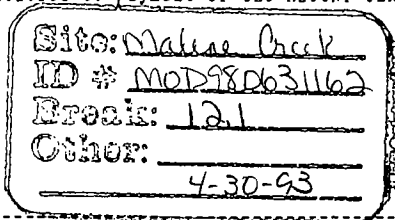 Site: Maline Creek
ID # MOD980631162
Break: 12.1
Other:
4-30-93